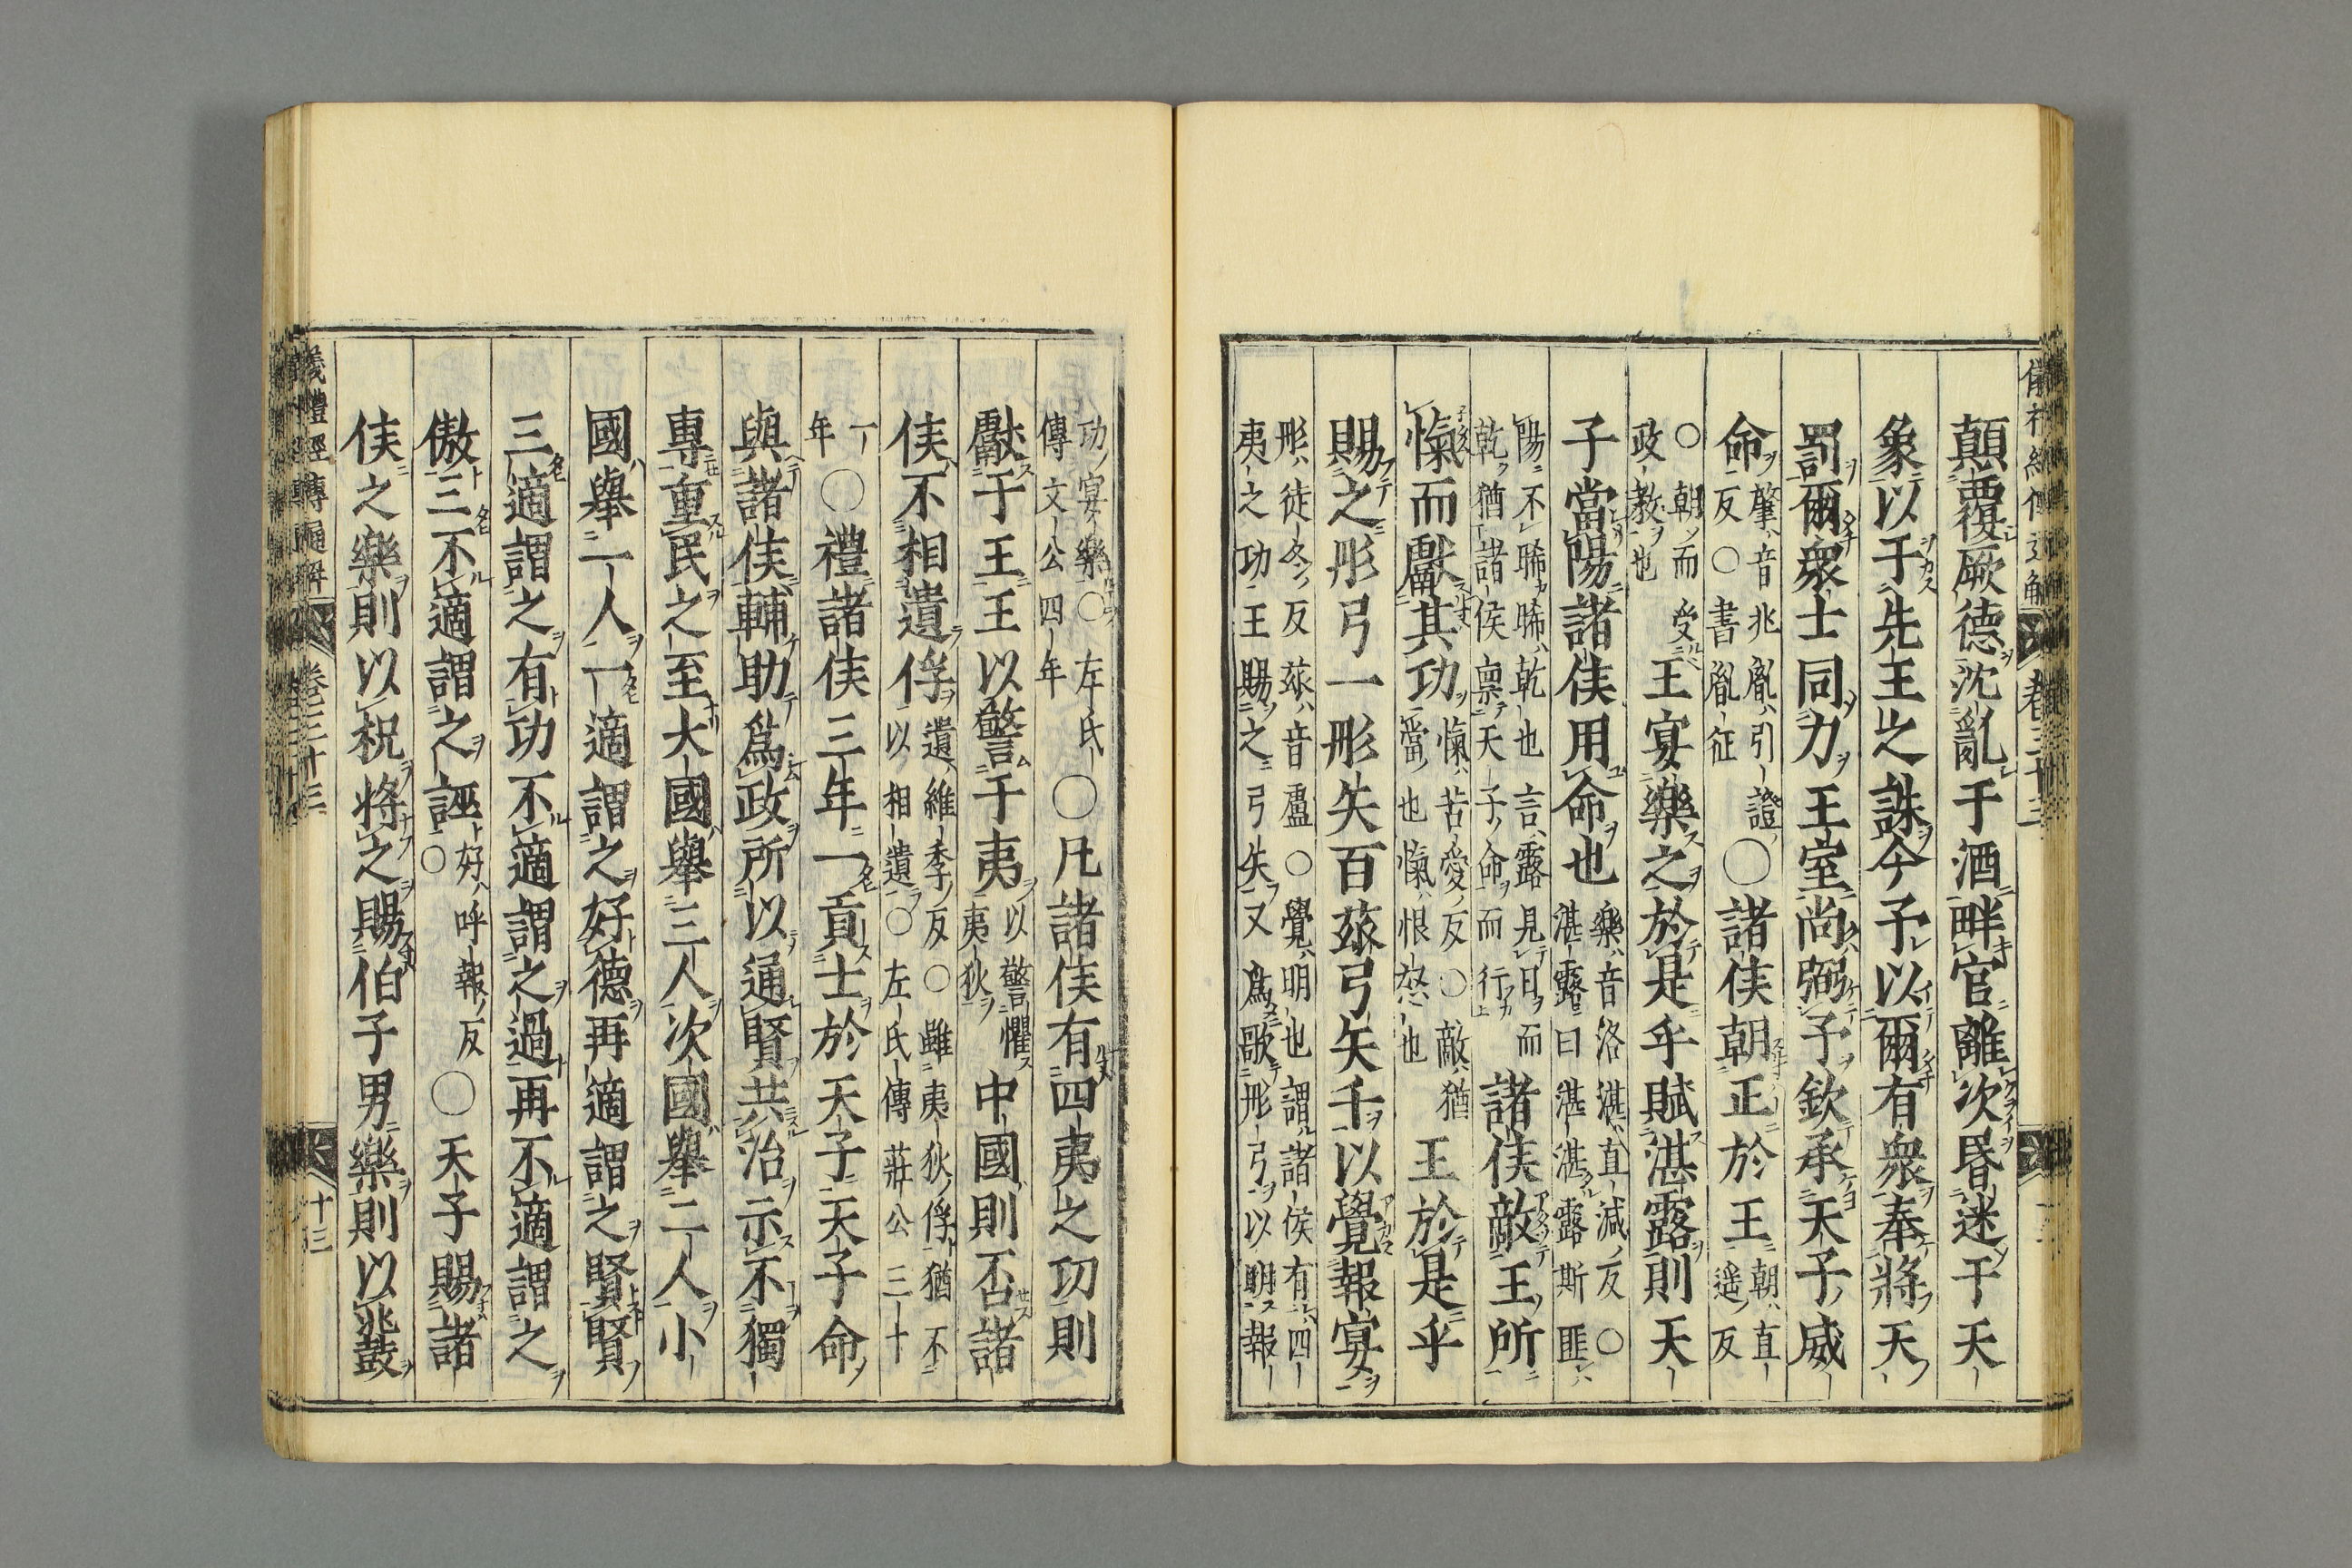 儀禮經傳通解 卷三十三
顛覆厥德沈亂于酒畔官離次昏迷于天
象以干先王之誅今予以爾有衆奉將天
罰爾衆士同力王室尚弼予欽承天子威
命肇音兆胤引證反○書胤征○諸侯朝正於王朝直遥反
○朝而受政教也王宴樂之於是乎賦湛露則天
子當陽諸侯用命也樂音洛湛直減反○湛露曰湛湛露斯匪
陽不晞晞乾也言露見日而乾猶諸侯禀天子命而行諸侯敵王所
愾而獻其功愾苦愛反○敵猶當也愾恨怒也王於是乎
賜之彤弓一彤矢百玈弓矢千以覺報宴
彤徒冬反玈音盧○覺明也謂諸侯有四夷之功王賜之弓矢又爲歌彤弓以明報
功宴樂○左氏傳文公四年○凡諸侯有四夷之功則
獻于王王以警于夷以警懼夷狄中國則否諸
侯不相遺俘遺維季反○雖夷狄俘猶不以相遺○左氏傳莊公三十
一年○禮諸侯三年一貢士於天子天子命
與諸侯輔助爲政所以通賢共治示不獨
專重民之至大國舉三人次國舉二人小
國舉一人一適謂之好德再適謂之賢賢
三適謂之有功不適謂之過再不適謂之
傲三不適謂之誣好呼報反○○天子賜諸
侯之樂則以祝將之賜伯子男樂則以鼗
儀禮經傳通解 卷三十三 十三